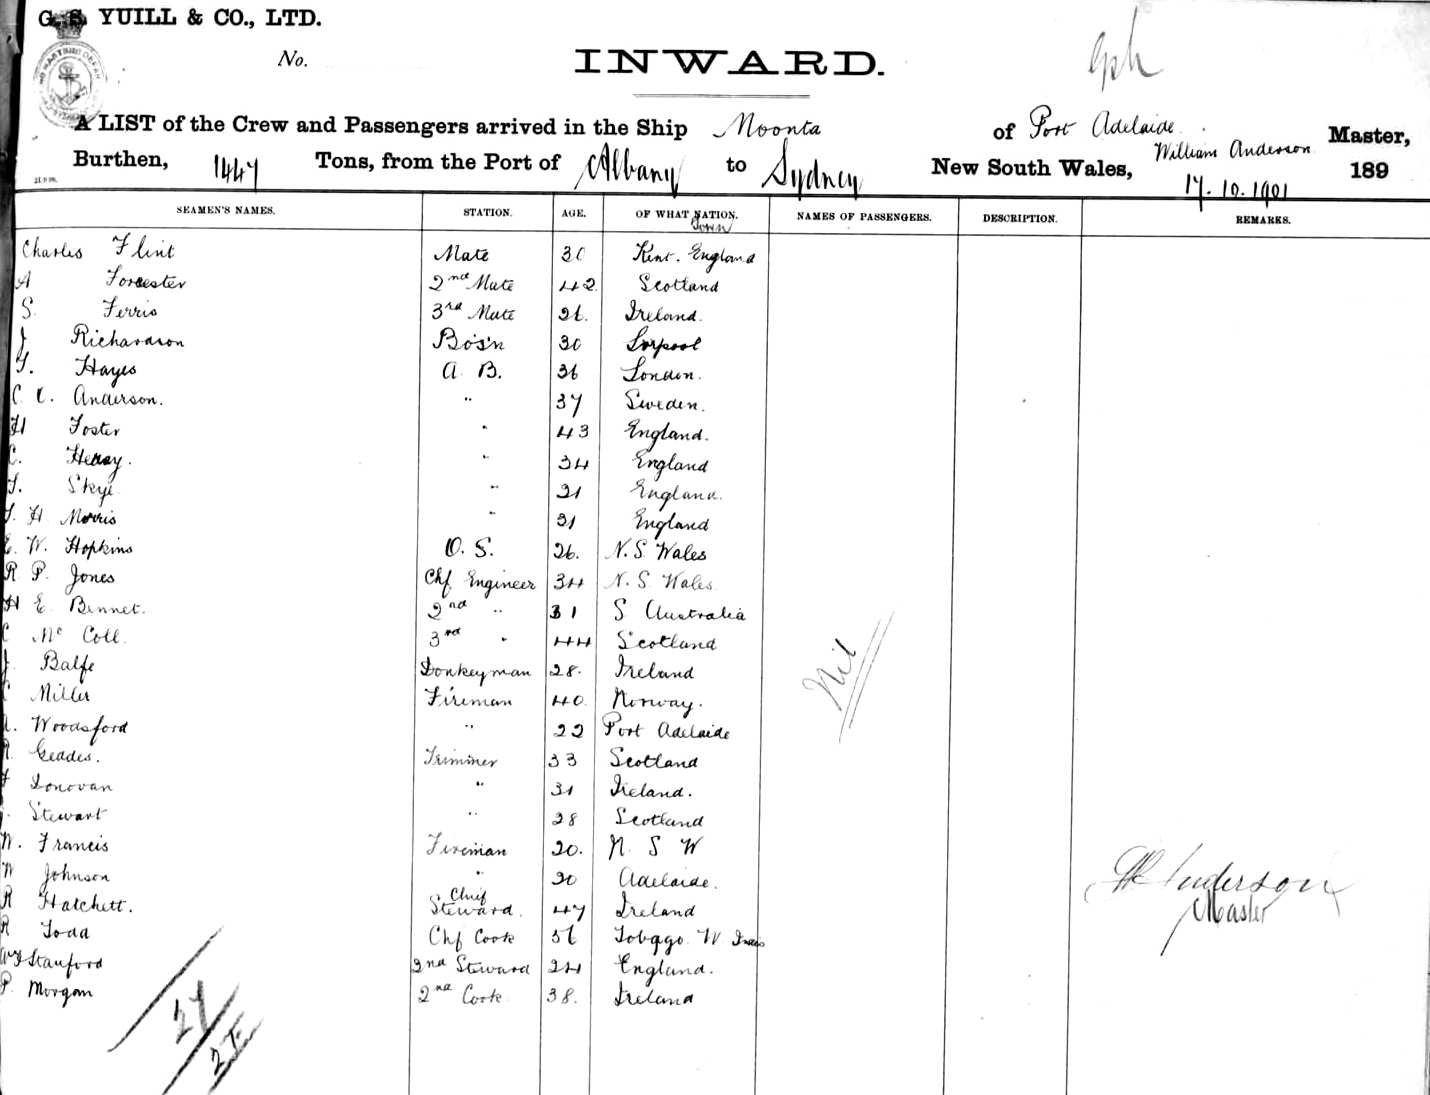 G. S. YUILL & CO., LTD.
No.
INWARD.
A LIST of the Crew and Passengers arrived in the Ship Moonta of Port Adelaide
William Anderson Master,
Burthen, 1447 Tons, from the Port of Albany to Sydney New South Wales, 17.10.1901 189
SEAMEN'S NAMES. STATION. AGE. OF WHAT NATION. NAMES OF PASSENGERS. DESCRIPTION. REMARKS.
Town
Charles Flint Mate 30 Kent. England
A Forcester 2nd Mate 42 Scotland
S. Ferris 3rd Mate 26. Ireland.
J Richardson Bo's'n 30 Lvrpool
T. Hayes A. B. 36 London.
C. C. Anderson. " 37 Sweden.
H Foster " 43 England.
C. Heasy. " 34 England
T. Skye " 21 England.
T. H. Morris " 31 England
E. W. Hopkins O. S. 26. N. S Wales
R P. Jones Chf Engineer 34 N. S Wales.
H E. Bennet. 2nd " 31 S Australia
C Mc Coll. 3rd " 44 Scotland
J. Balfe Donkeyman 28. Ireland
C Miller Fireman 40. Norway.
A. Woodsford " 22 Port Adelaide
R. Geades. Trimmer 33 Scotland
F Donovan " 31 Ireland.
J. Stewart " 28 Scotland
W. Francis Fireman 20. N. S W
W Johnson " 20 Adelaide.
R Hatchett. Chief Steward. 47 Ireland
R Todd Chf Cook 56 Tobago. W Indies
W F Stanford 2nd Steward 24 England.
P. Morgan 2nd Cook 38. Ireland
Nil
W Anderson
Master
27
27